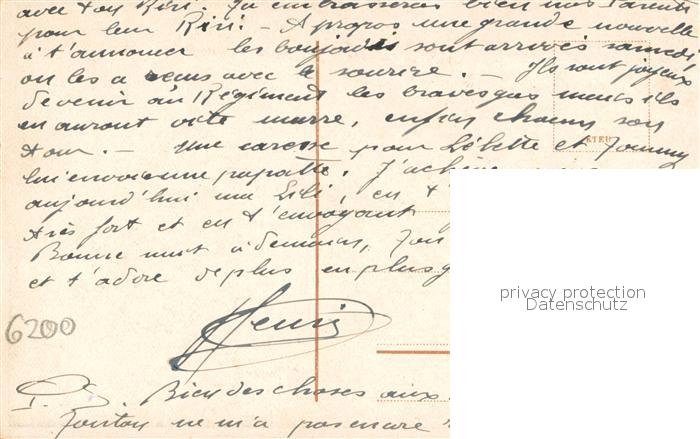 avec ton Riri. Tu embrasseras bien nos Parents
pour leur Riri. — A propos une grande nouvelle
à t'annoncer les boujadis sont arrivés samedi,
on les a reçus avec le sourire. — Ils sont joyeux
de venir au Régiment les braves gas mais ils
en auront vite marre, enfin chacun son
tour. — Une caresse pour Bébette et Tommy
lui envoie une papatte. J'achève
aujourd'hui ma Lili, en t'
très fort et en t'envoyant
Bonne nuit à demain, Ton
et t'adore de plus en plus
Henri
6200
P.S. Bien des choses aux
Tonton ne m'a pas encore
privacy protection
Datenschutz